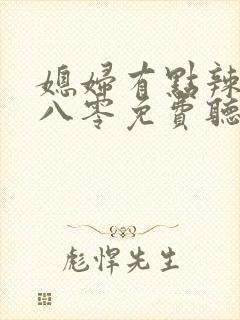 媳婦有點辣
八零免費聽
彪悍先生